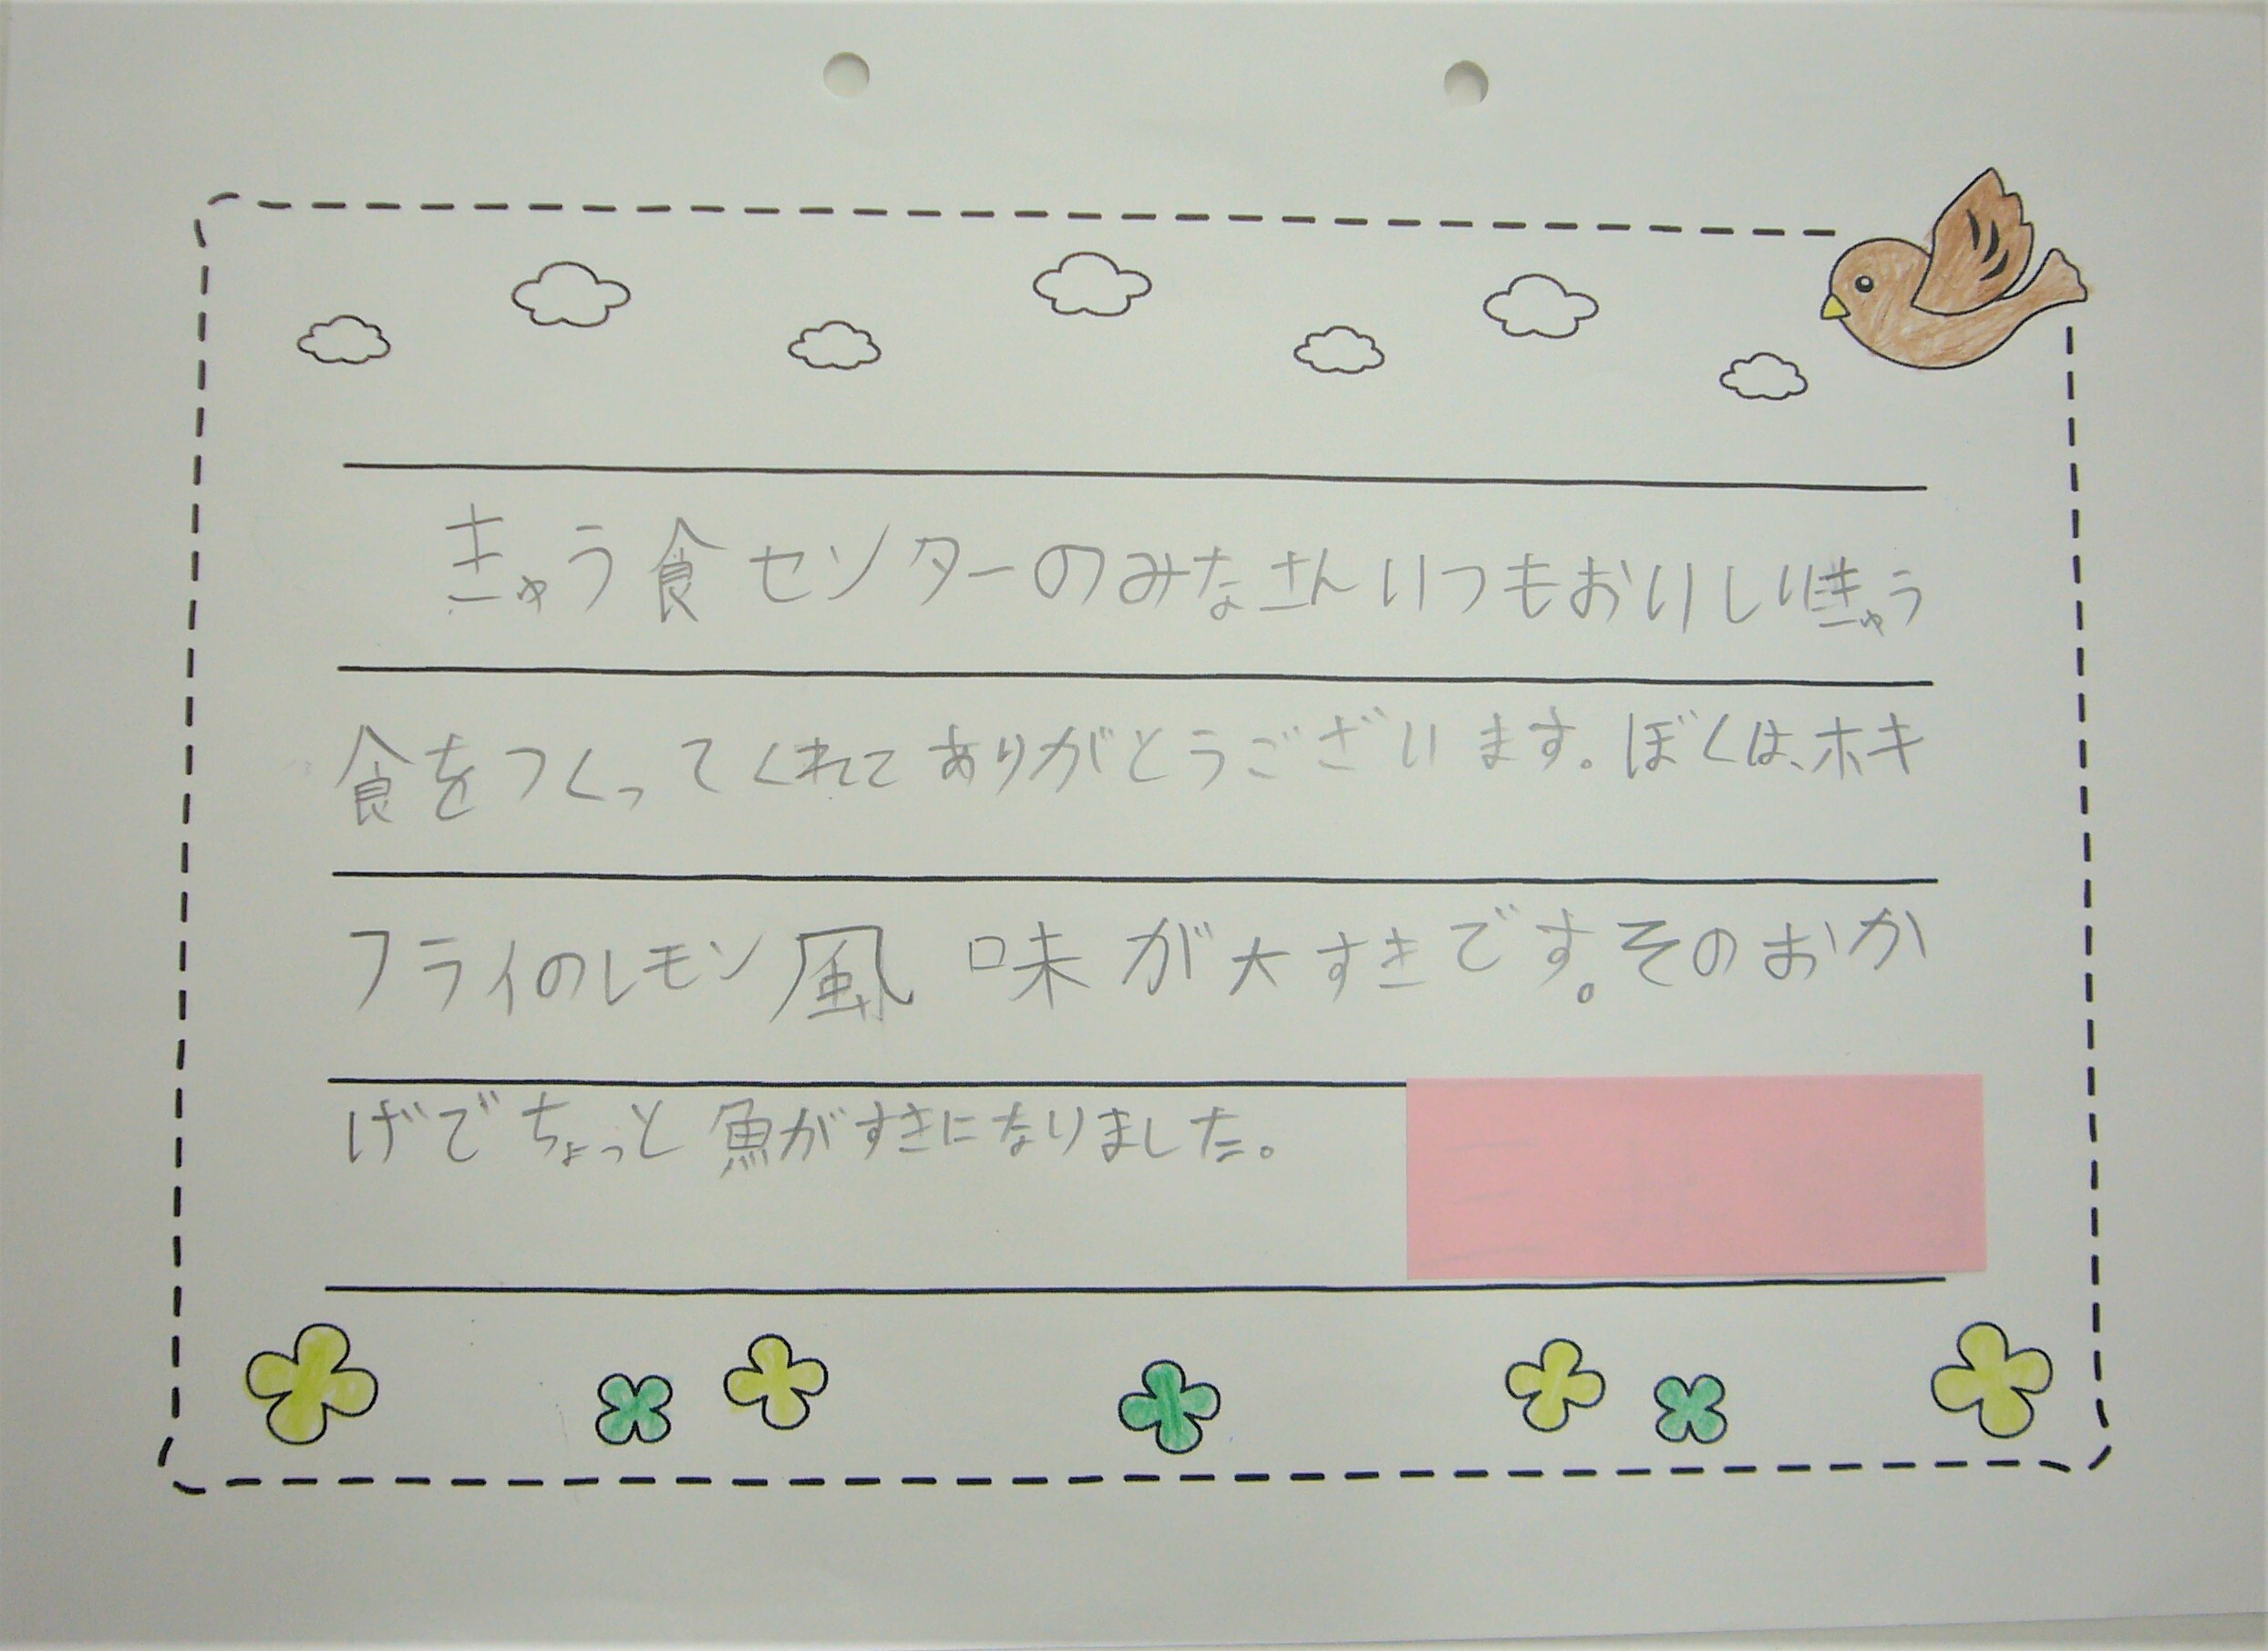 きゅう食センターのみなさんいつもおいしいきゅう
食をつくってくれてありがとうございます。ぼくは、ホキ
フライのレモン風味が大すきです。そのおか
げでちょっと魚がすきになりました。